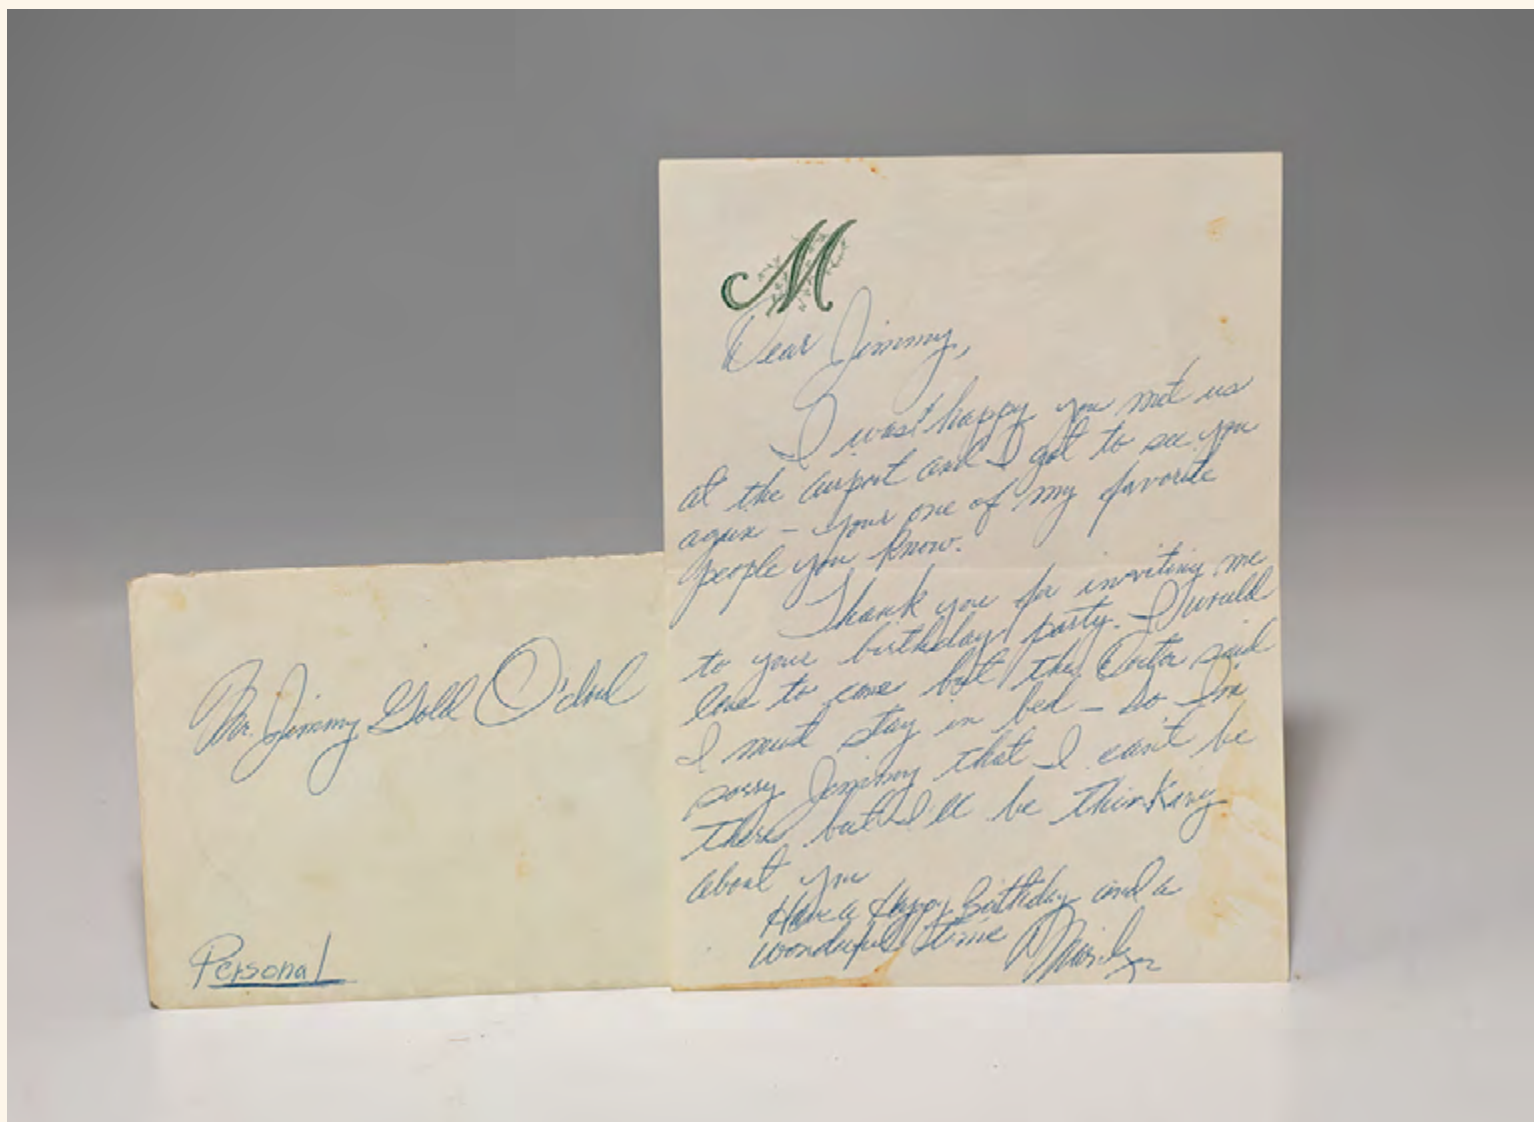 Mr. Jimmy Gold O'doul
Personal
M
Dear Jimmy,
I was happy you met us
at the airport and I got to see you
again – your one of my favorite
people you know.
Thank you for inviting me
to your birthday party. I would
love to come but the Doctor said
I must stay in bed – so I'm
sorry Jimmy that I can't be
there but I'll be thinking
about you
Have a Happy Birthday and a
wonderful time
Marilyn